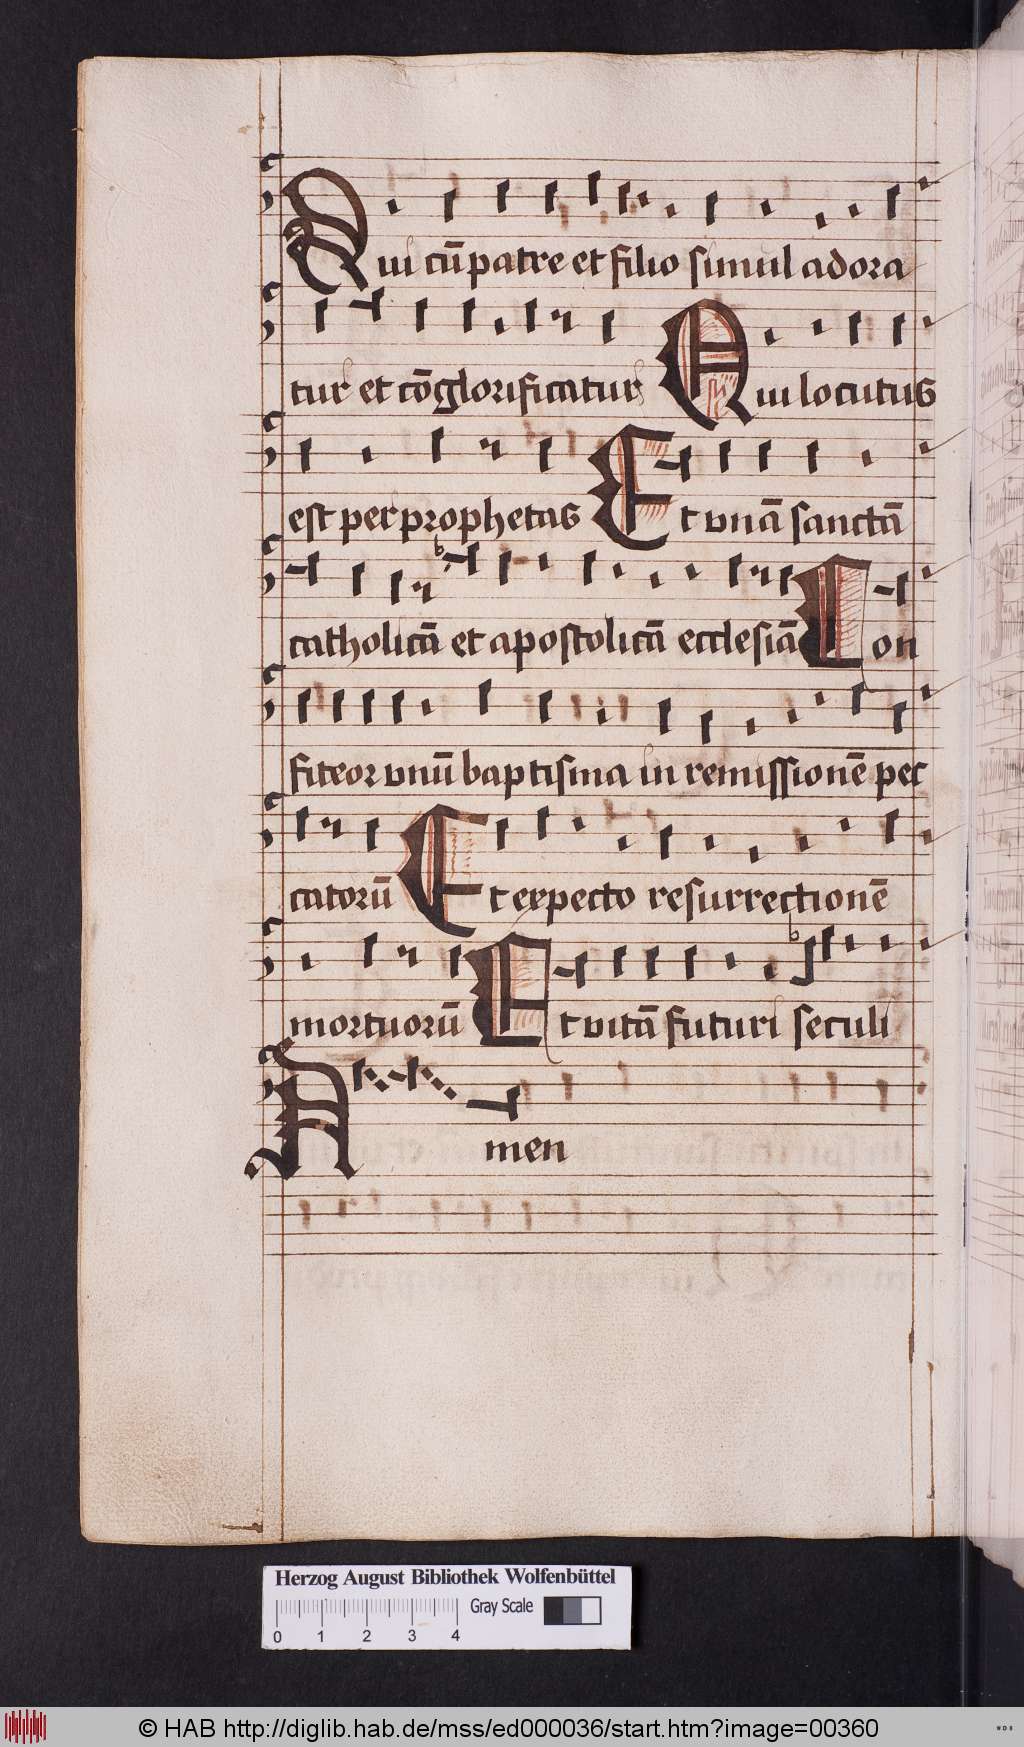 Qui cū patre et filio simul adora
tur et cōglorificatur Qui locutus
est per prophetas Et vnā sanctā
catholicā et apostolicā ecclesiā Con
fiteor vnū baptisma in remissionē pec
catorū Et expecto resurrectionē
mortuorū Et vitā futuri seculi
Amen
Herzog August Bibliothek Wolfenbüttel
Gray Scale
0 1 2 3 4
© HAB http://diglib.hab.de/mss/ed000036/start.htm?image=00360